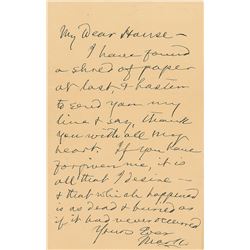 My Dear House —
I have found
a shred of paper
at last, & hasten
to send you my
line & say, thank
you with all my
heart. If you have
forgiven me, it is
all that I desire —
& that which happened
is as dead & buried as
if it had never occurred
Yours Ever
Mark